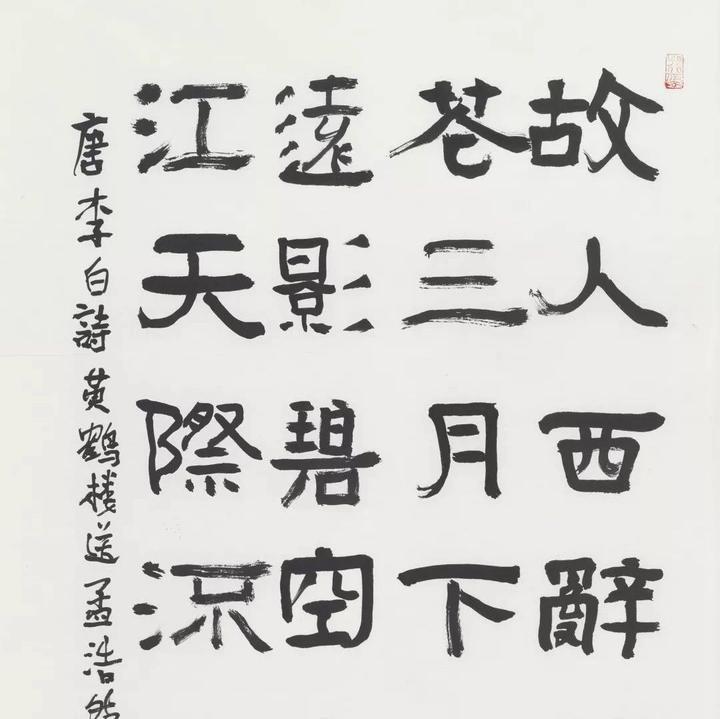 故人西辭
花三月下
遠影碧空
江天際流
唐李白詩黄鶴楼送孟浩然